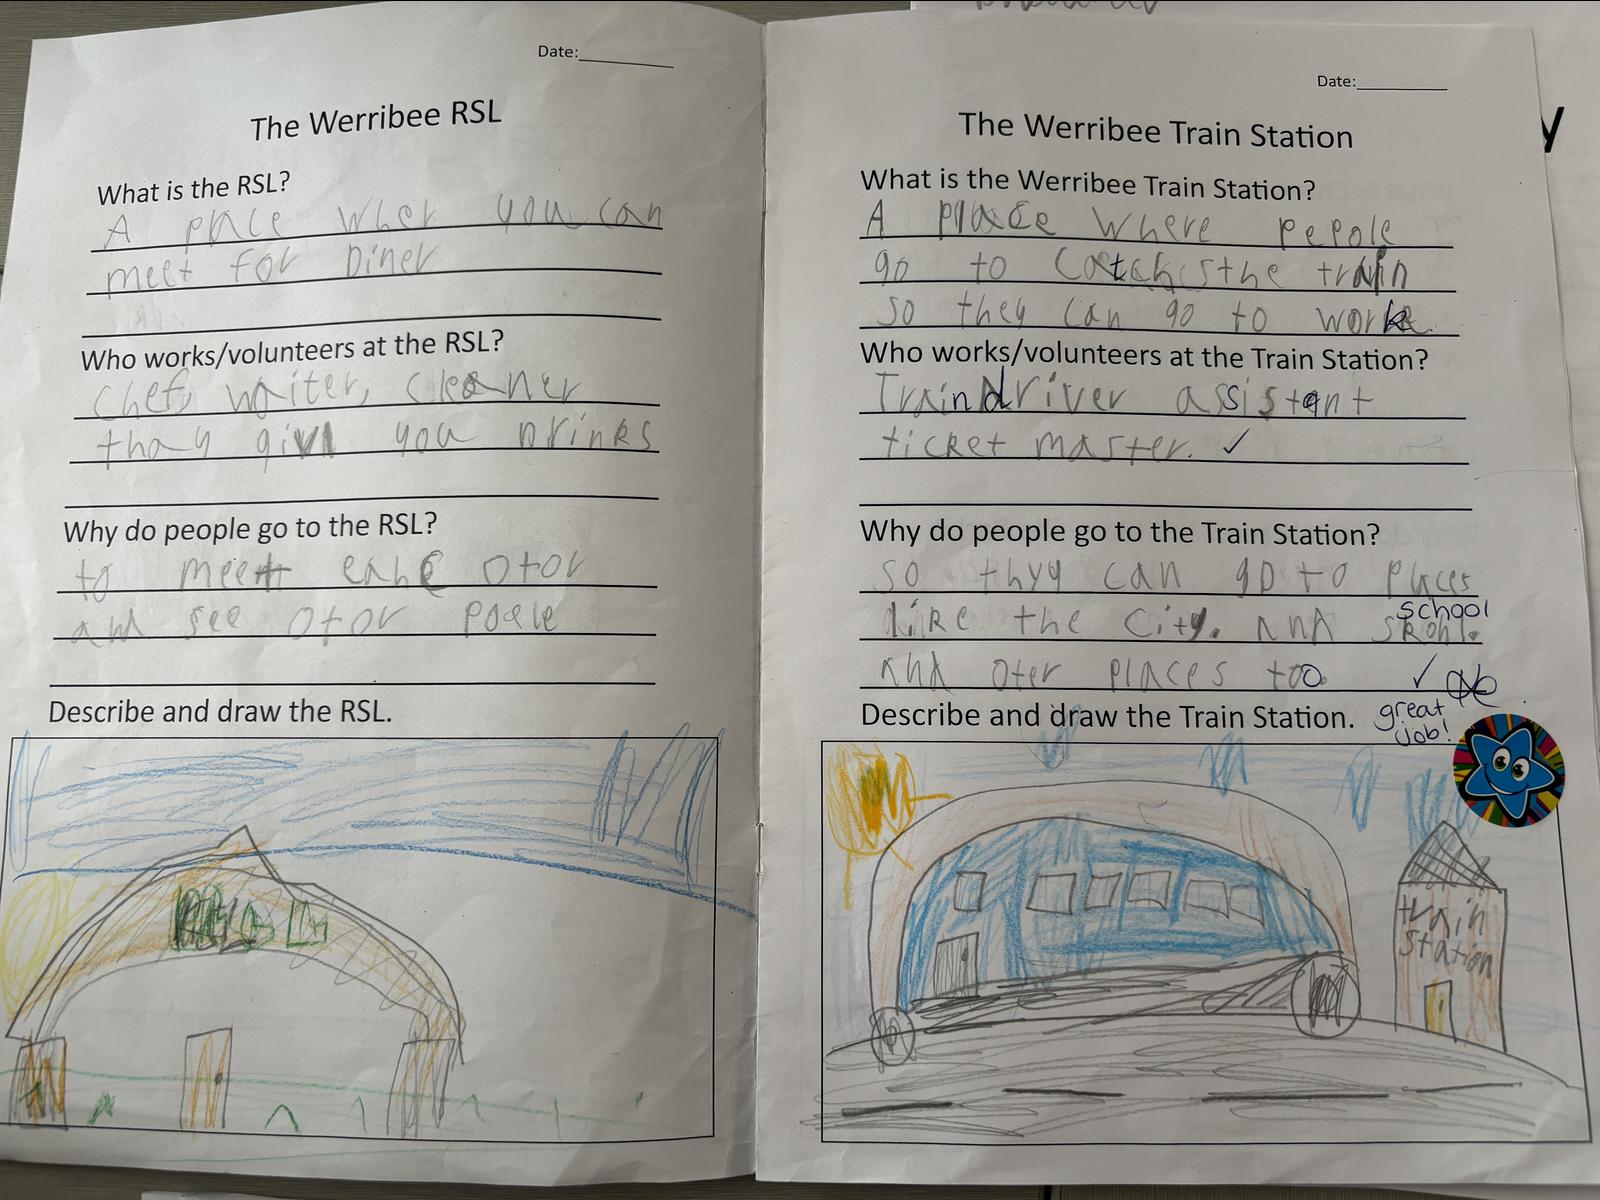 Date:
The Werribee RSL
What is the RSL?
A place wher you can
meet for Diner
Who works/volunteers at the RSL?
chef, waiter, cleaner
thay give you Drinks
Why do people go to the RSL?
to meet eahc otor
and see otor poele
Describe and draw the RSL.
Date:
The Werribee Train Station
What is the Werribee Train Station?
A place where pepole
go to catch the train
so they can go to work.
Who works/volunteers at the Train Station?
Train driver assistant
ticket master. ✓
Why do people go to the Train Station?
so thyy can go to places
school
like the city. and skohl.
and oter places too. ✓
great
job!
Describe and draw the Train Station.
train
station